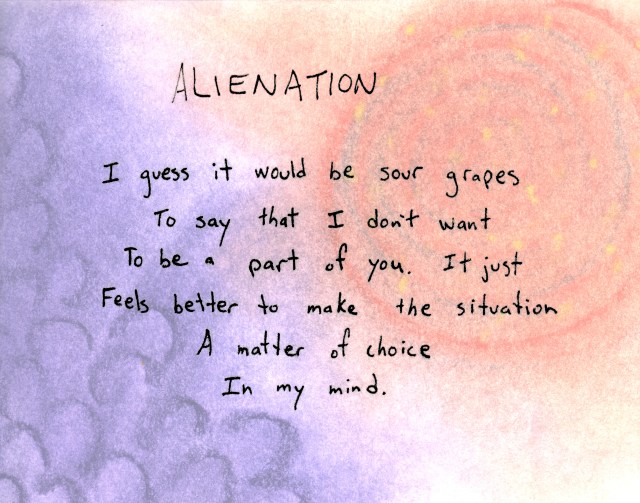 ALIENATION
I guess it would be sour grapes
To say that I don't want
To be a part of you. It just
Feels better to make the situation
A matter of choice
In my mind.